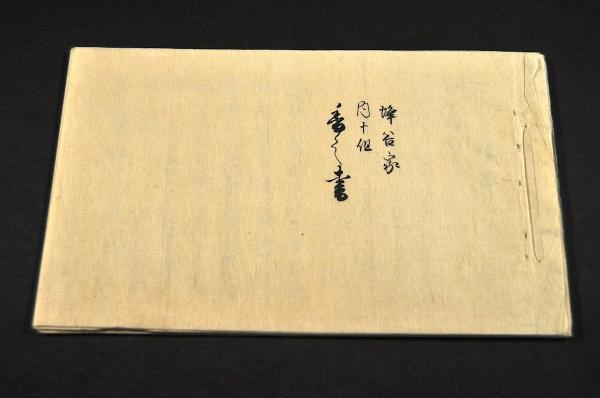 蜂谷家
内十組
香之書